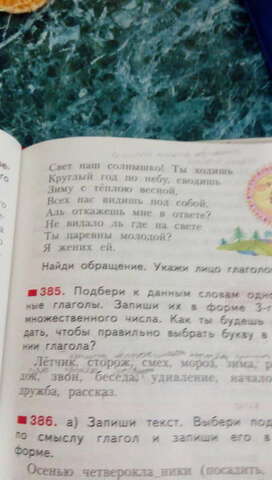 Свет наш солнышко! Ты ходишь
Круглый год по небу, сводишь
Зиму с тёплою весной,
Всех нас видишь под собой.
Аль откажешь мне в ответе?
Не видало ль где на свете
Ты царевны молодой?
Я жених ей.
Найди обращение. Укажи лицо глаголо
385. Подбери к данным словам одно
ные глаголы. Запиши их в форме 3-г
множественного числа. Как ты будешь
дать, чтобы правильно выбрать букву в
нии глагола?
Лётчик, сторож, смех, мороз, зима, р
док, звон, беседа, удивление, начало
дружба, рассказ.
386. а) Запиши текст. Выбери под
по смыслу глагол и запиши его в
форме.
Осенью четверокла ники (посадить,